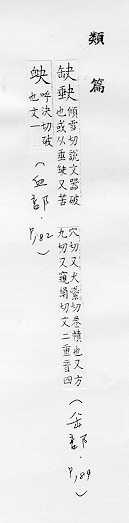 類篇
缺𡙇傾雪切說文器破
也或从垂缺又苦
穴切又犬縈切卷幘也又方
九切又窺絹切文二重音四
(缶部.P.189)
䀏呼決切破
也文一
(皿部.P.182)